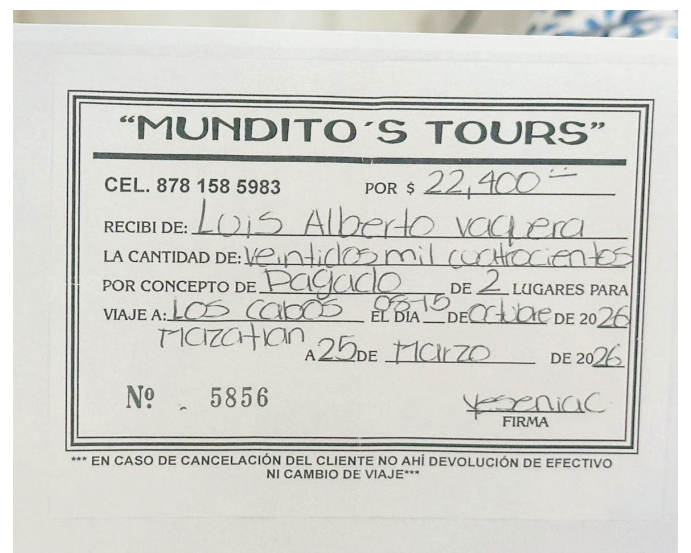 “MUNDITO´S TOURS”
CEL. 878 158 5983 POR $ 22,400
RECIBI DE: Luis Alberto vaquera
LA CANTIDAD DE: veintidos mil cuatrocientos
POR CONCEPTO DE Pagado DE 2 LUGARES PARA
VIAJE A: Los cabos EL DÍA 08-15 DE octubre DE 2026
Mazatlan
A 25 DE Marzo DE 2026
Nº 5856
FIRMA
*** EN CASO DE CANCELACIÓN DEL CLIENTE NO AHÍ DEVOLUCIÓN DE EFECTIVO
NI CAMBIO DE VIAJE***